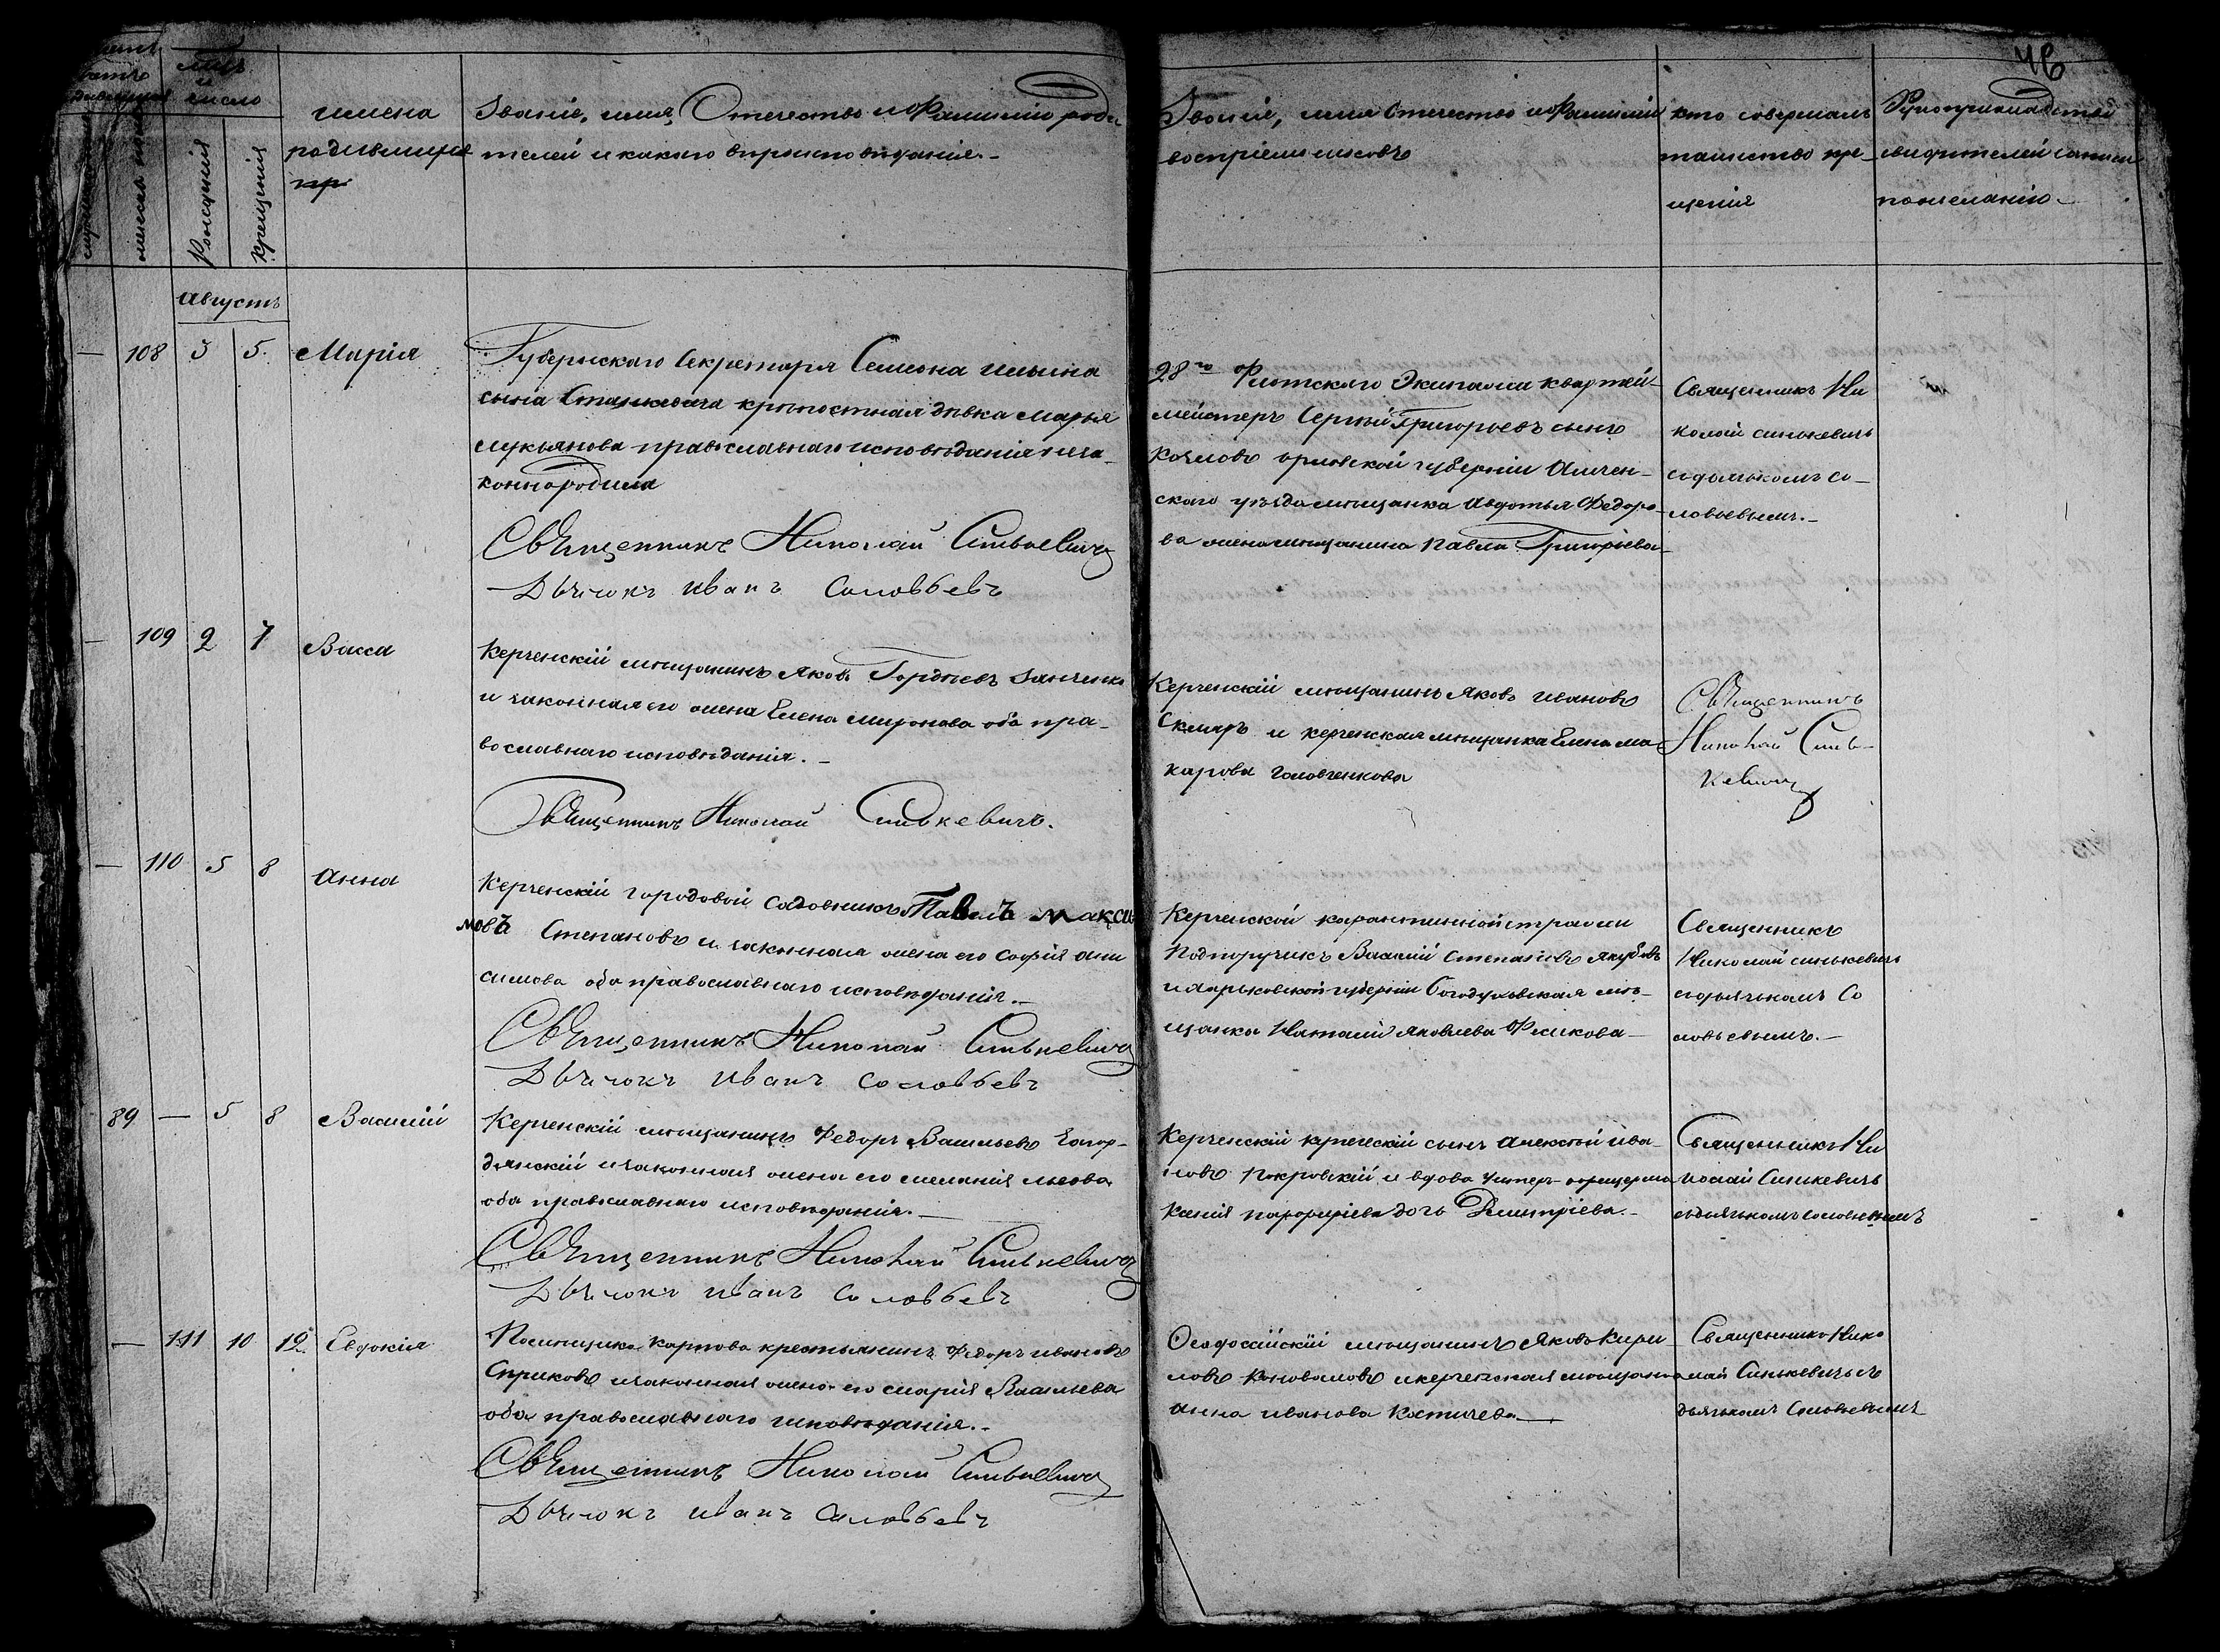 46
мць
и
число
рожденія
крещенія
имена
родившихся
Званіе, имя, Отечество и Фамилія роди
телей и какого вѣроисповѣданія.-
Званіе, имя Отечество и Фамилія
воспріемниковъ
кто совершалъ
таинство кре-
щенія
Рукоприкладство
свидѣтелей записи
по желанію-
августъ
— 108 3 5. Марія
Губернскаго Секретаря Семена Ильина
сына Станкевича крѣпостная дѣвка Марья
Лукьянова православнаго исповѣданія неза-
коннородила
Священникъ Николай Синькевичъ
Дьячокъ Иванъ Соловьевъ
28го Флотскаго Экипажа квартей-
мейстеръ Сергѣй Григорьевъ сынъ
Козловъ орловской губерніи Амчен-
скаго уѣзда мѣщанка Авдотья Федоро-
ва жена мѣщанина Павла Григорьева-
Священникъ Ни
колай синькевичъ
содьячкомъ со-
ловьевымъ.-
— 109 2 7 Васса
Керченскій мѣщанинъ Яковъ Гордѣевъ Занченко
и законная его жена Елена Миронова оба пра-
вославнаго исповѣданія.-
Священникъ Николай Синькевичъ.
Керченскій мѣщанинъ Яковъ Ивановъ
Скляръ и керченская мѣщанка Елена ма
карова Головченкова
Священникъ
Николай Синь-
кевичъ
— 110 5 8 Анна
Керченскій городовой садовникъ Павелъ Макси
мовъ Степановъ и законная жена его Софія они
симова оба православнаго исповѣданія.-
Священникъ Николай Синькевичъ
Дьячокъ Иванъ Соловьевъ
Керченской карантинной стражи
Подпоручикъ Василій Степановъ Якубовъ
и харьковской губерніи Богодуховская мѣ-
щанка Наталія Яковлева Фесикова-
Священникъ
Николай синькевичъ
содьячкомъ Со
ловьевымъ.-
89 — 5 8 Василій
Керченскій мѣщанинъ Федоръ Васильевъ Богор-
дянскій и законная жена его Меланія Львова
оба православнаго исповѣданія.-
Священникъ Николай Синькевичъ
Дьячокъ Иванъ Соловьевъ
Керченскій купеческій сынъ Алексѣй Ива-
новъ Покровскій и вдова Унтеръ-офицерша
Ксенія порфиріева дочь Дмитріева.-
Священникъ Ни
колай Синькевичъ
содьячкомъ соловьевымъ
— 111 10 12 Евдокія
Помѣщика Карпова крестьянинъ Федоръ Ивановъ
Сприковъ и законная жена его Марія Васильева
оба православнаго исповѣданія.-
Священникъ Николай Синькевичъ
Дьячокъ Иванъ Соловьевъ
Ѳеодосійскій мѣщанинъ Яковъ Кири
ловъ Коноваловъ и керченская мѣщанка
анна иванова Костичева
Священникъ Нико
лай Синькевичъ съ
дьячкомъ Соловьевымъ